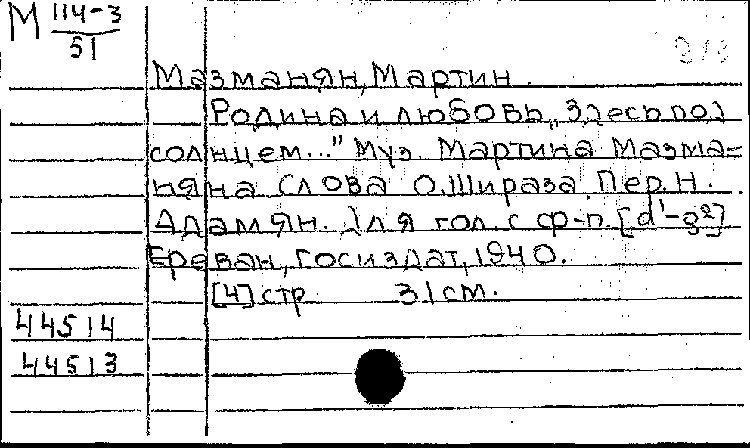 М 114-3
51
Мазманян, Мартин.
Родина и любовь „Здесь под
солнцем..." Муз. Мартина Мазма-
няна Слова О. Шираза Пер. Н.
Адамян. Для гол. с ф-п. [d¹-g²]
Ереван, Госиздат, 1940.
[4] стр. 31 см.
44514
44513